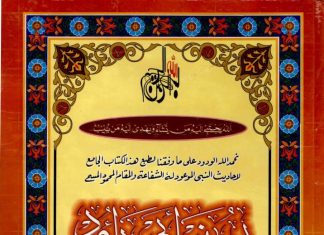 الله يجتبي اليه من يشاء ويهدي اليه من ينيب
نحمد الله الودود على ما وفقنا لطبع هذا الكتاب الجامع
لاحاديث النبي الموعود له الشفاعة والمقام المحمود المسمى